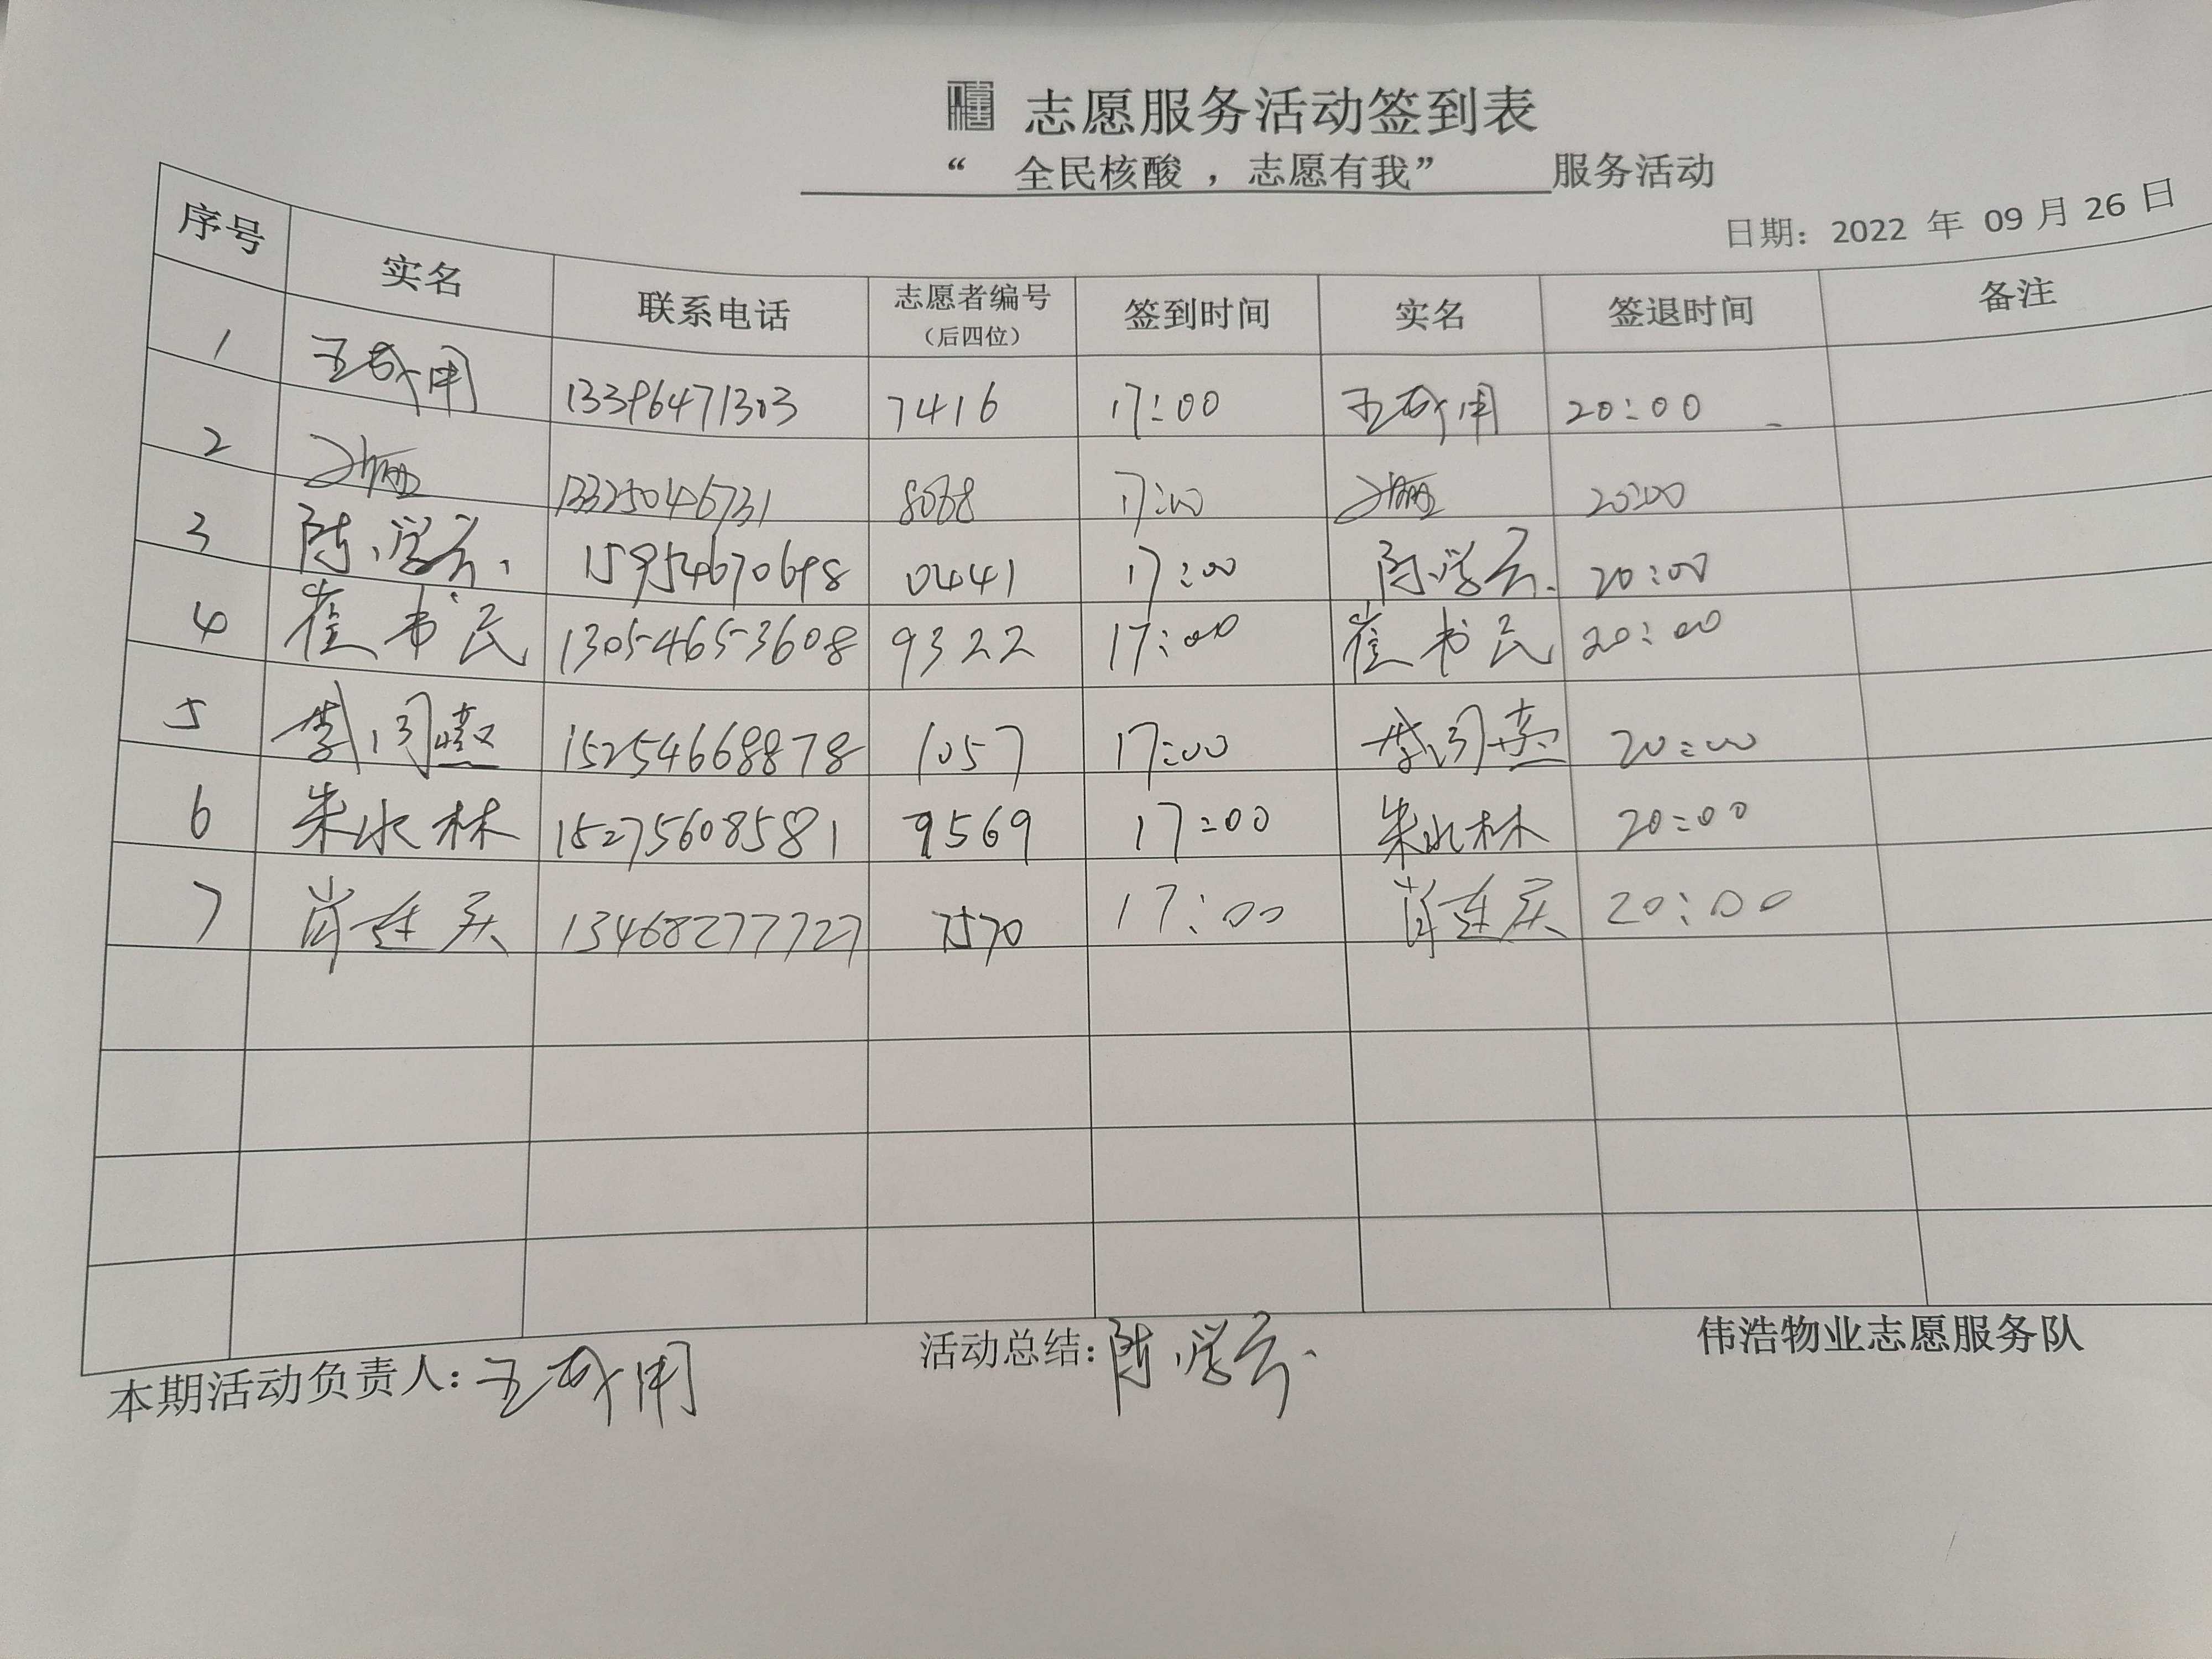 志愿服务活动签到表
“ 全民核酸 ，志愿有我” 服务活动
日期：2022 年 09 月 26 日
序号 实名 联系电话 志愿者编号（后四位） 签到时间 实名 签退时间 备注
1 13396471303 7416 17:00 20:00
2 13325046731 17:00 20:00
3 陈学云 15954670698 0441 17:00 陈学云 20:00
4 崔书民 13054653608 9322 17:00 崔书民 20:00
5 15254668878 1057 17:00 20:00
6 朱水林 15275608581 9569 17:00 朱水林 20:00
7 肖连庆 13468277727 7570 17:00 肖连庆 20:00
本期活动负责人： 活动总结：陈学云 伟浩物业志愿服务队